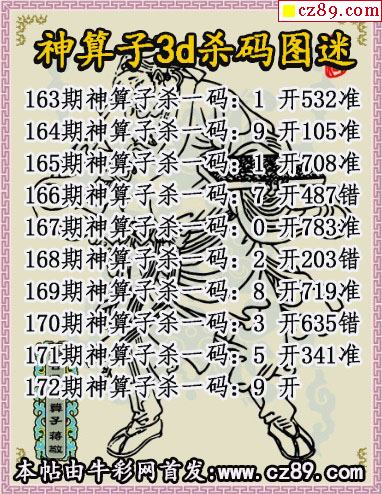 cz89.com
神算子3d杀码图迷
163期神算子杀一码：1 开532准
164期神算子杀一码：9 开105准
165期神算子杀一码：1 开708准
166期神算子杀一码：7 开487错
167期神算子杀一码：0 开783准
168期神算子杀一码：2 开203错
169期神算子杀一码：8 开719准
170期神算子杀一码：3 开635错
171期神算子杀一码：5 开341准
172期神算子杀一码：9 开
算子 蒋敬
本帖由牛彩网首发:www.cz89.com